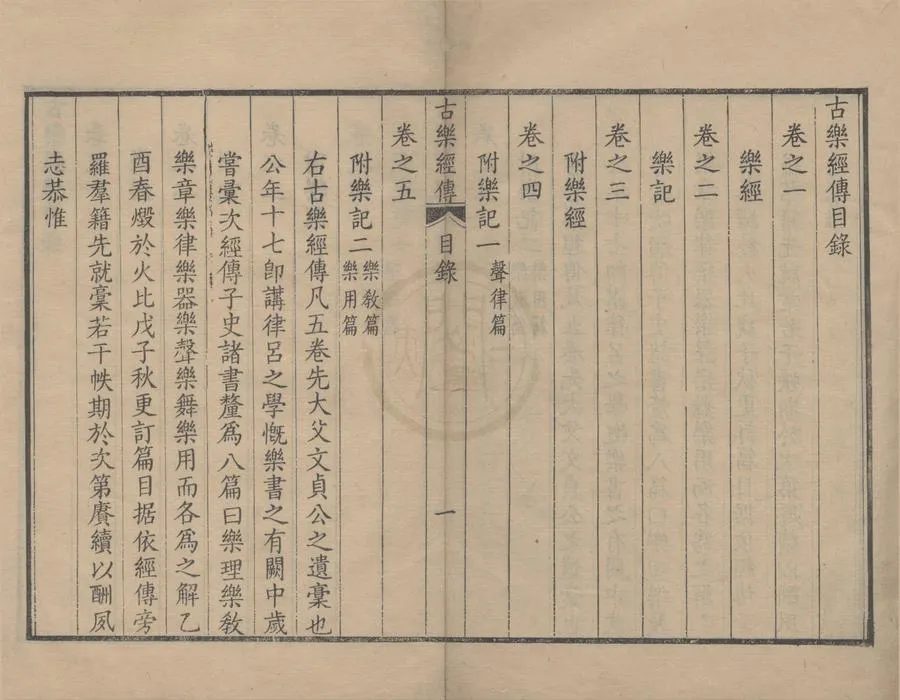 古樂經傳目錄
卷之一
樂經
卷之二
樂記
卷之三
附樂經
卷之四
附樂記一聲律篇
古樂經傳 目錄 一
卷之五
附樂記二樂敎篇樂用篇
右古樂經傳凡五卷先大父文貞公之遺稾也
公年十七卽講律呂之學慨樂書之有闕中歲
嘗彙次經傳子史諸書釐爲八篇曰樂理樂敎
樂章樂律樂器樂聲樂舞樂用而各爲之解乙
酉春燬於火比戊子秋更訂篇目据依經傳旁
羅羣籍先就稾若干帙期於次第賡續以酬夙
志恭惟